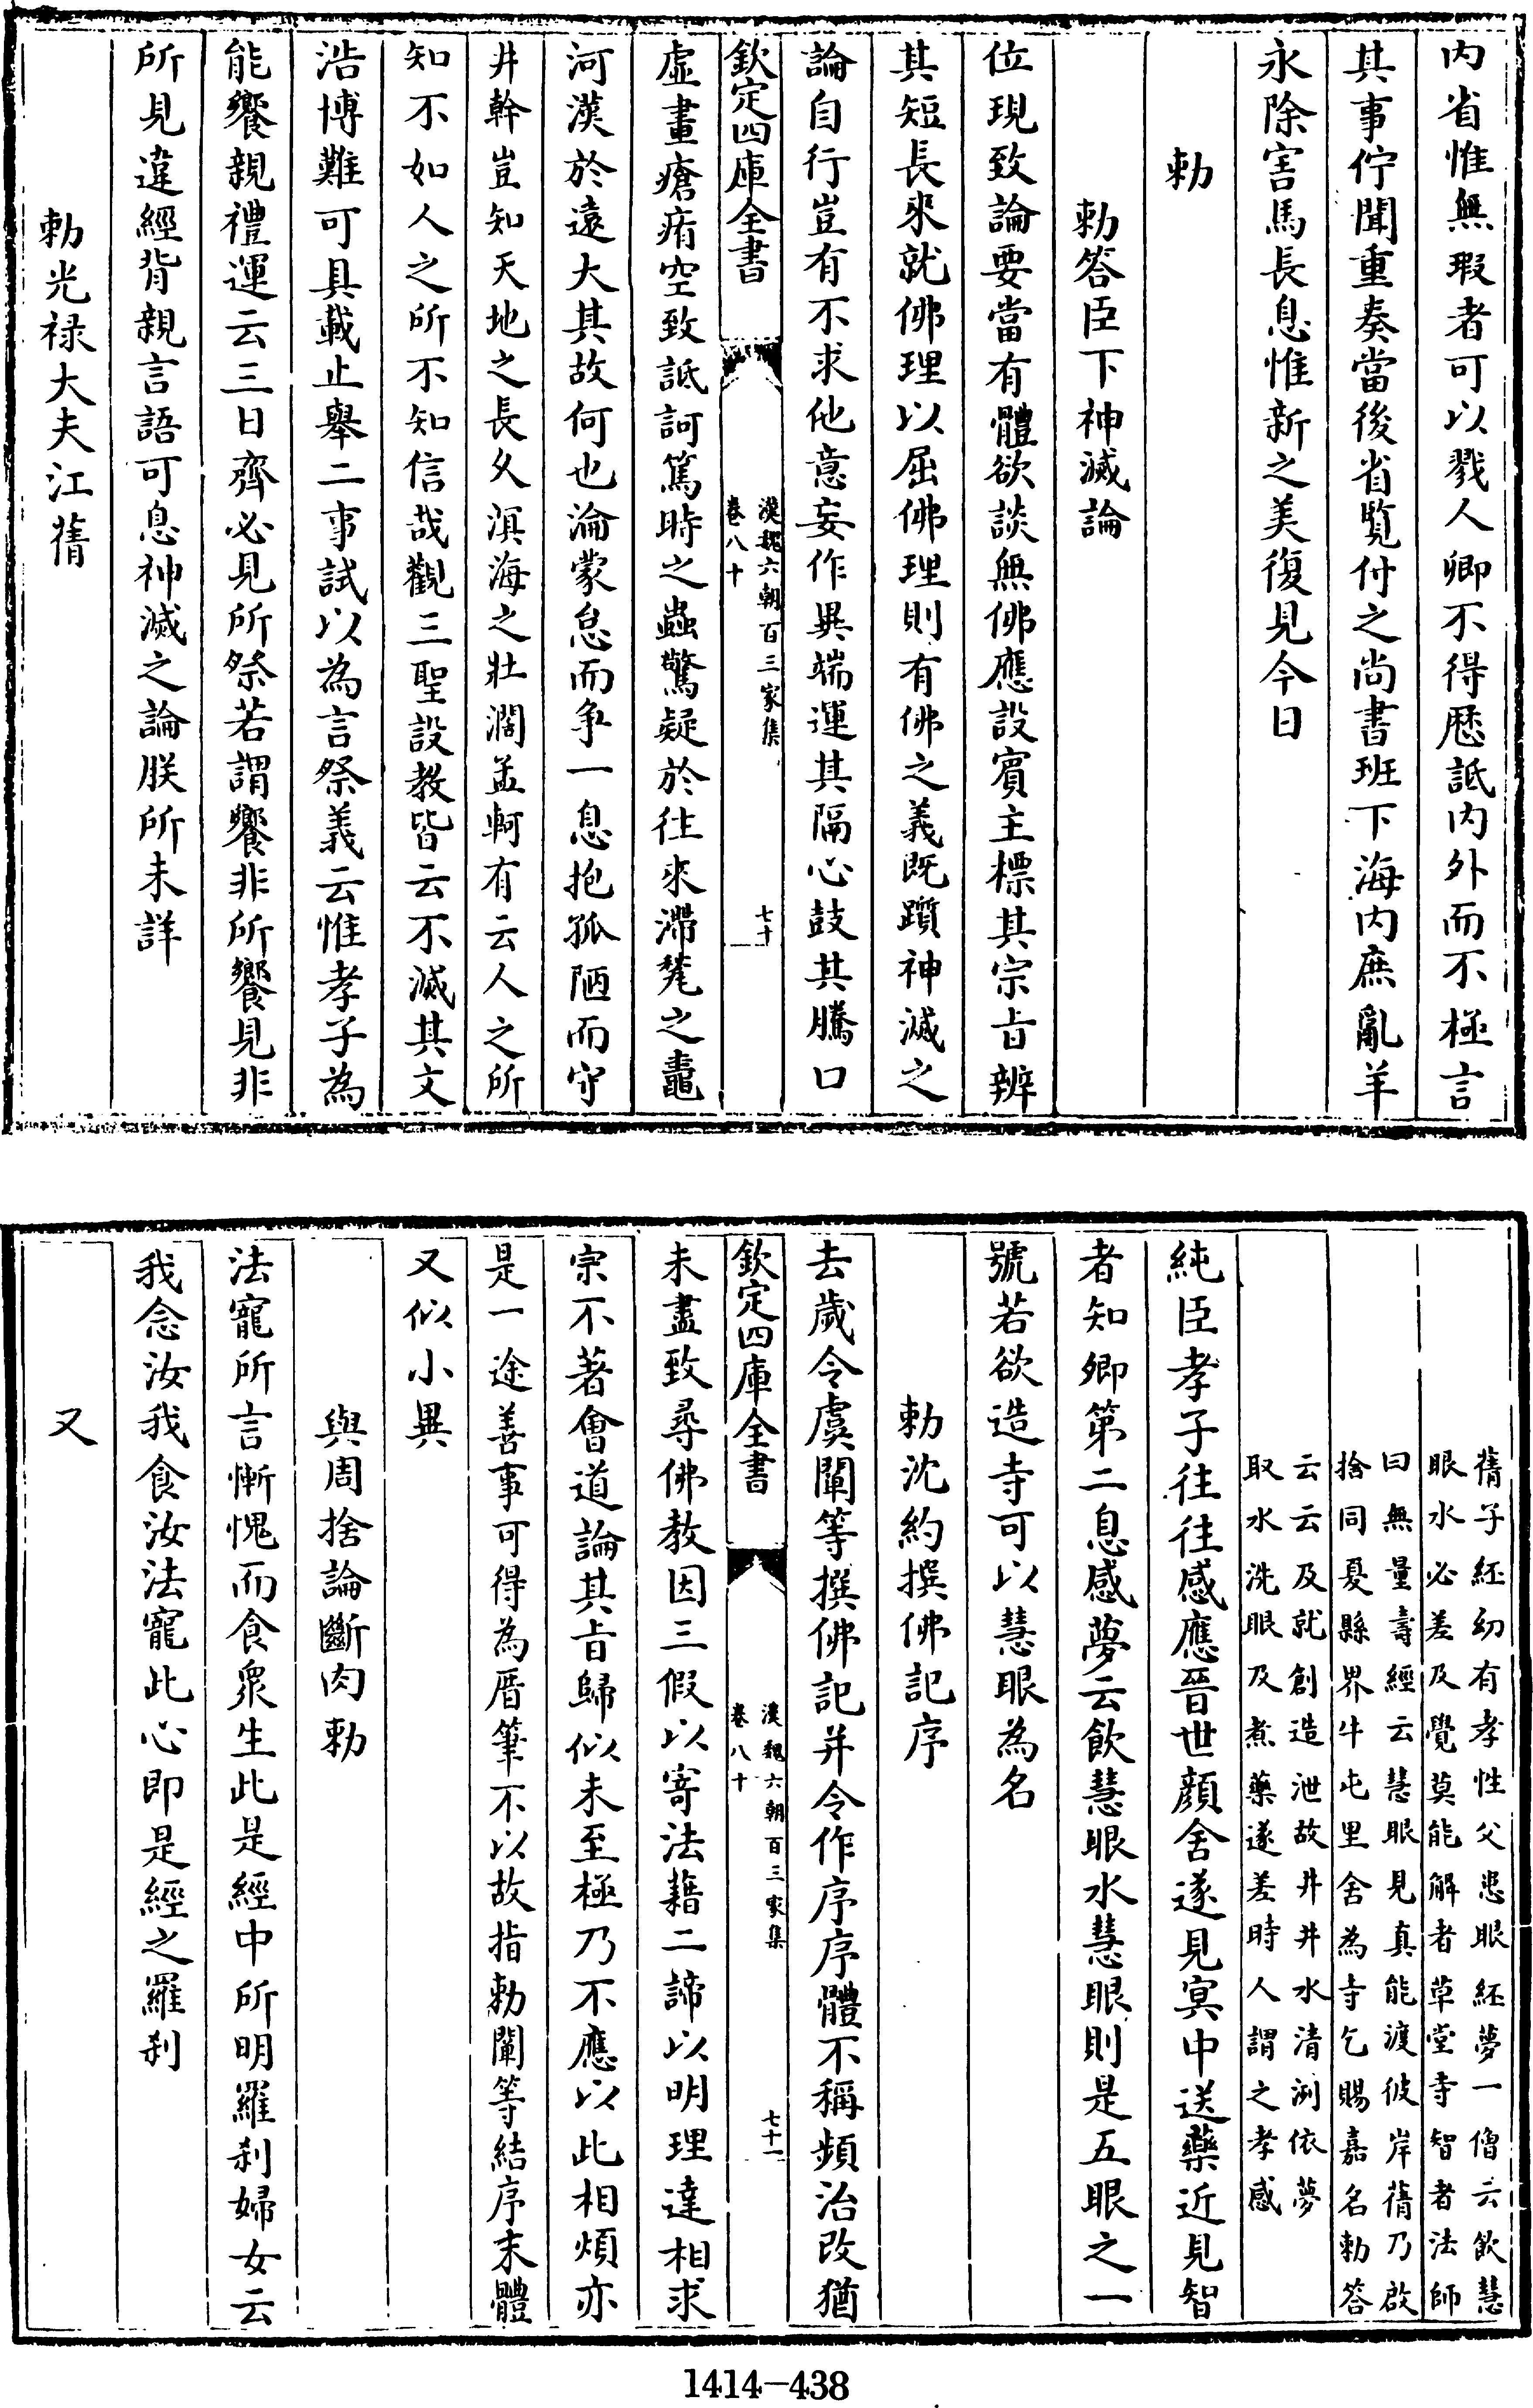 内省惟無瑕者可以戮人卿不得厯詆内外而不極言
其事佇聞重奏當後省覧付之尚書班下海内庶亂羊
永除害馬長息惟新之美復見今日
勅
勅答臣下神滅論
位現致論要當有體欲談無佛應設賓主標其宗㫖辨
其短長來就佛理以屈佛理則有佛之義既躓神滅之
論自行豈有不求他意妄作異端運其隔心鼓其騰口
欽定四庫全書
漢魏六朝百三家集
卷八十
七十
虚畫瘡痏空致詆訶篤時之蟲驚疑於往來滯甃之鼃
河漢於遠大其故何也淪蒙怠而爭一息抱孤陋而守
井幹豈知天地之長久溟海之壯濶孟軻有云人之所
知不如人之所不知信哉觀三聖設教皆云不滅其文
浩博難可具載止舉二事試以為言祭義云惟孝子為
能饗親禮運云三日齊必見所祭若謂饗非所饗見非
所見違經背親言語可息神滅之論朕所未詳
勅光禄大夫江蒨
蒨子紑幼有孝性父患眼紑夢一僧云飲慧
眼水必差及覺莫能解者草堂寺智者法師
曰無量壽經云慧眼見真能渡彼岸蒨乃啟
捨同夏縣界牛屯里舍為寺乞賜嘉名勅答
云云及就創造泄故井井水清洌依夢
取水洗眼及煮藥遂差時人謂之孝感
純臣孝子往往感應晉世顔含遂見冥中送藥近見智
者知卿第二息感夢云飲慧眼水慧眼則是五眼之一
號若欲造寺可以慧眼為名
勅沈約撰佛記序
去歲令虞闡等撰佛記并令作序序體不稱頻治改猶
欽定四庫全書
漢魏六朝百三家集
卷八十
七十一
未盡致尋佛教因三假以寄法藉二諦以明理達相求
宗不著會道論其㫖歸似未至極乃不應以此相煩亦
是一途善事可得為厝筆不以故指勅闡等結序末體
又似小異
與周捨論斷肉勅
法寵所言慚愧而食衆生此是經中所明羅刹婦女云
我念汝我食汝法寵此心即是經之羅刹
又
1414-438